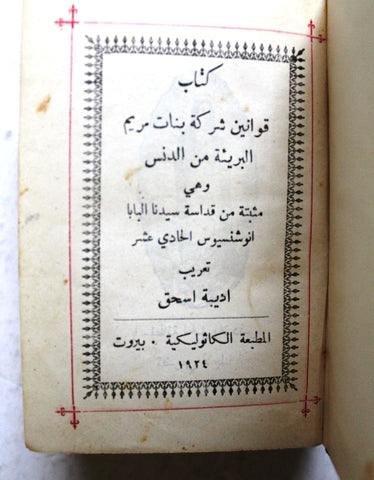 كتاب
قوانين شركة بنات مريم
البريئة من الدنس
وهي
مثبتة من قداسة سيدنا البابا
انوشنسيوس الحادي عشر
تعريب
اديبة اسحق
المطبعة الكاثوليكية . بيروت
١٩٢٤